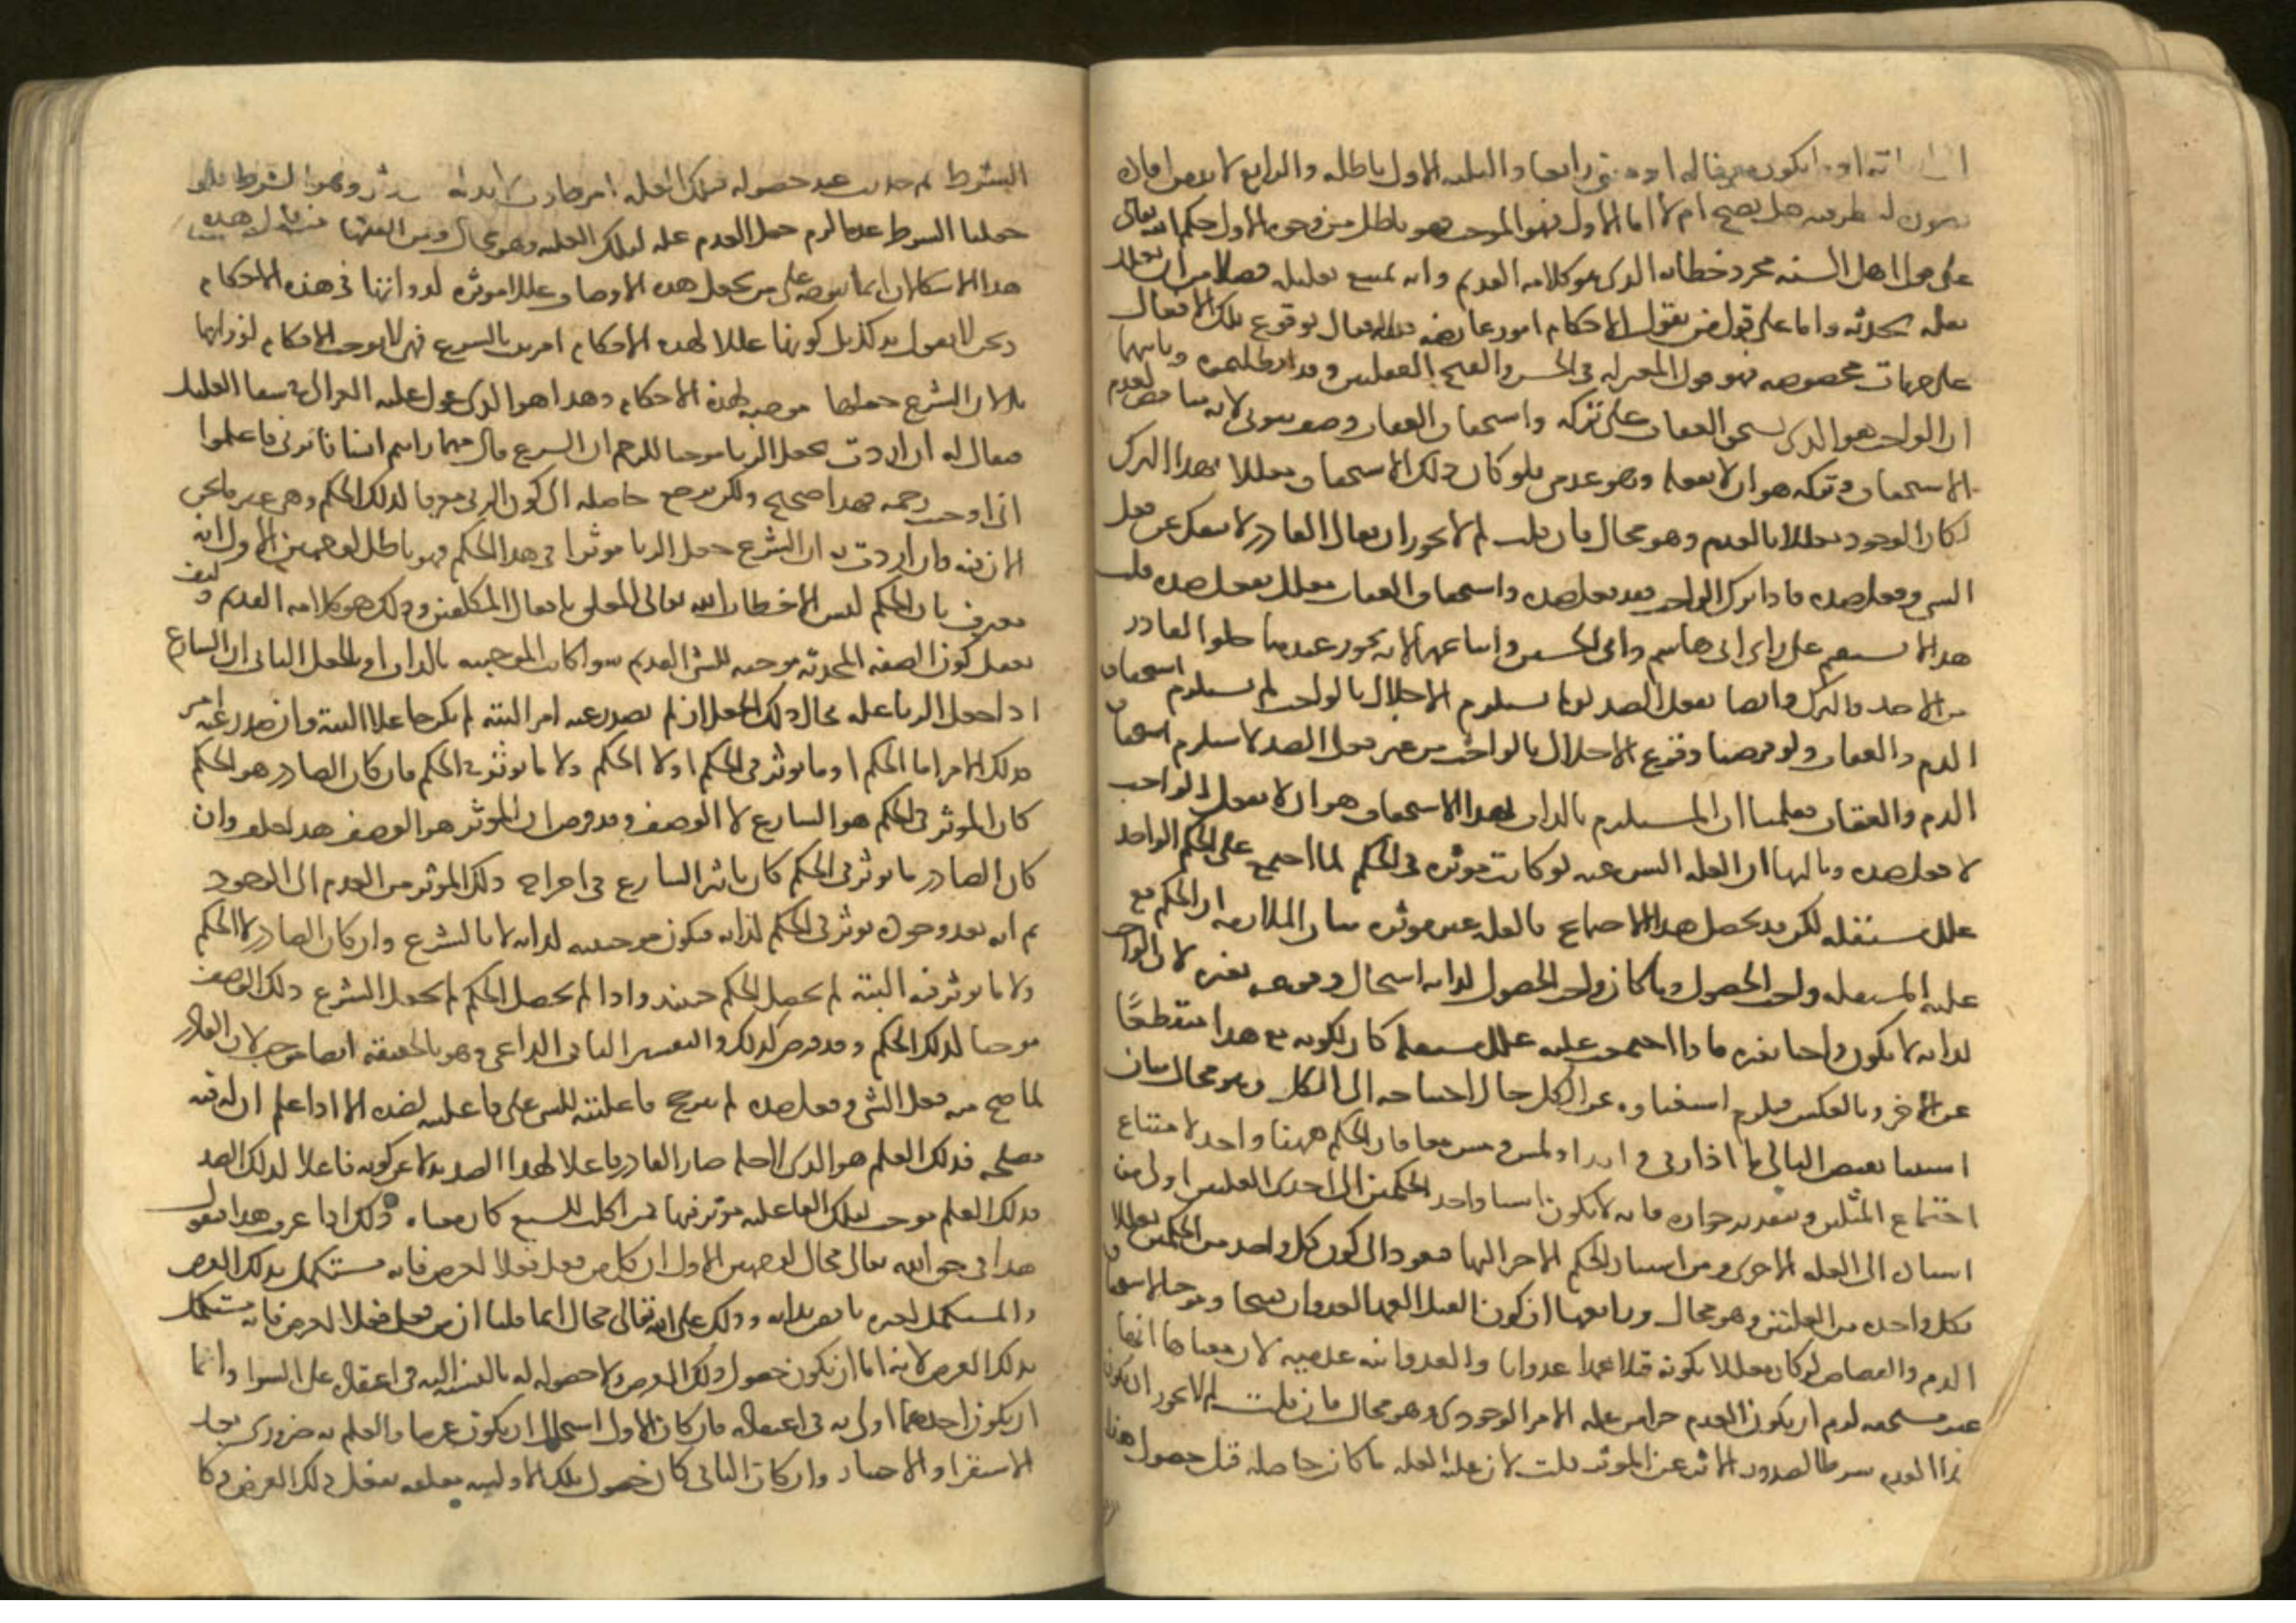 او يكون معرفا له او معنى رابعا والثلثه الاول باطله والرابع لا بد من افادة
لطرفيه هل يصح ام لا اما الاول فهو الموجب فهو باطل من وجوه الاول حكم الله تعالى
على قول اهل السنه مجرد خطابه الدى هو كلامه القديم وانه يمتنع تعليله فضلا من ان يعلل
بعله محدثه واما على قول من يقول الاحكام امور عارضه للافعال بوقوع تلك الافعال
على جهات مخصوصه فهو قول المعتزله فى الحسن والقبح العقليين وقد ابطلناه وثانيها
ان الواجب هو الدى يستحق العقاب على تركه واستحقاق العقاب وصف ثبوتى لانه مناقض لعدم
الاستحقاق وتركه هو ان لا يفعله وهو عدمى فلو كان ذلك الاستحقاق معللا بهدا الترك
لكان الوجود معللا بالعدم وهو محال فان قلت لم لا يجوز ان يقال القادر لا ينفك عن فعل
الشى وفعل ضده فادا ترك الواجب فقد فعل ضده واستحقاق العقاب معلل بفعل ضده قلت
هدا لا يستقيم على راى ابى هاشم وابى الحسين واتباعهما لانه يجوز عندهما خلو القادر
من الاخد والترك وايضا بفعل الضد لو لم يستلزم الاخلال بالواجب لم يستلزم استحقاق
الدم والعقاب ولو فرضنا وقوع الاخلال بالواجب من غير فعل الضد لاستلزم استحقاق
الدم والعقاب فعلمنا ان المستلزم بالدات لهدا الاستحقاق هو ان لا يفعل الواجب
لا فعل ضده وثالثها ان العله الشرعيه لو كانت موثره فى الحكم لما اجتمع على الحكم الواحد
علل مستقله لكن قد يحصل هدا الاجتماع فالعله غير موثره بيان الملازمه ان الحكم مع
علته المستقله واجب الحصول وما كان واجب الحصول لداته استحال وقوعه بغيره لان الواجب
لداته لا يكون واجبا بغيره فادا اجتمعت عليه علل مستقله كان لكونه مع هدا منقطعًا
عن الاخر وبالعكس فيلزم استغناوه عن الكل حال احتياجه الى الكل وهو محال بيان
انتفا نقيض التالى ما اذا زنى وارتد او لمس ومس معا فان الحكم ههنا واحد لامتناع
اجتماع المثلين وبتقدير جوازه فانه لا يكون استناد احد الحكمين الى احدى العلتين اولى من
استناد الى العله الاخرى ومن استناد الحكم الاخر اليها فيعود الى كون كل واحد من الحكمين معللا
بكل واحده من العلتين وهو محال ورابعها ان كون القتل العمد العدوان قبيحا وموجبا لاستحقاق
الدم والقصاص لو كان معللا بكونه قتلا عمدا عدوانا والعدوانيه عدميه لان معناها انها
غير مستحقه لزم ان يكون العدم جزا من عله الامر الوجودى وهو محال فان قلت لم لا يجوز ان يكون
هدا العدم شرطا لصدور الاثر عن الموثر قلت لان عليه العله ما كانت حاصله قبل حصول هدا
الشرط ثم حدثت عند حصوله فتلك العله امر حادث لا بد له من موثر وهو الشرط فلو
جعلنا الشرط عدما لزم جعل العدم عله لتلك العليه وهو محال ومن الفقها من قال هده
هدا الاشكالات انما تتوجه على من يجعل هده الاوصاف عللا موثره لدواتها فى هذه الاحكام
ونحن لا نقول بدلك بل كونها عللا لهده الاحكام امر ثبت بالشرع فهى لا توجب الاحكام لذواتها
بل لان الشرع جعلها موجبه لهذه الاحكام وهدا هو الدى عول عليه الغزالى فى شفا العليل
فيقال له ان اردت بجعل الزنا موجبا للرجم ان الشرع قال مهما رايتم انسانا زنى فاعلموا
انى اوجبت رجمه فهدا صحيح ولكن يرجع حاصله الى كون الزنى معرفا لدلك الحكم وهو غير ما نحن
الان فيه وان اردت به ان الشرع جعل الزنا موثرا فى هدا الحكم فهو باطل لوجهين الاول انه
معترف بان الحكم ليس الا خطاب الله تعالى المتعلق بافعال المكلفين ودلك هو كلامه القديم وكيف
يعقل كون الصفه المحدثه موجبه للشى القديم سوا كانت الموجبيه بالدات او بالجعل الثانى ان الشارع
ادا جعل الزنا عله فحال دلك الجعل ان لم يصدر عنه امر البته لم يكن جاعلا البتة وان صدر عنه امر
فدلك الامر اما الحكم او ما يوثر فى الحكم او لا الحكم ولا ما يوثر فى الحكم فان كان الصادر هو الحكم
كان الموثر فى الحكم هو الشارع لا الوصف وقد فرض ان الموثر هو الوصف هدا خلف وان
كان الصادر ما يوثر فى الحكم كان تاثير الشارع فى اخراج دلك الموثر من العدم الى الوجود
ثم انه بعد وجوده يوثر فى الحكم لذاته فتكون موجبيته لداته لا بالشرع وان كان الصادر لا الحكم
ولا ما يوثر فيه البتة لم يحصل الحكم حينئد وادا لم يحصل الحكم لم يجعل الشرع دلك الوصف
موجبا لدلك الحكم وقد فرض كدلك والتفسير الثانى الداعى وهو بالحقيقه ايضا موجب لان القادر
لما صح منه فعل الشى وفعل ضده لم يترجح فاعليته للشى على فاعليته لضده الا ادا علم ان له فيه
مصلحه فدلك العلم هو الدى لاجله صار القادر فاعلا لهدا الضد بدلا عن كونه فاعلا لدلك الضد
فدلك العلم موجب لتلك الفاعليه وموثر فيها فمن قال اكلت للشبع كان معناه دلك ادا عرفت هدا فنقول
هدا فى حق الله تعالى محال لوجهين الاول ان كل من فعل فعلا لغرض فانه مستكمل بدلك الغرض
والمستكمل بغيره ناقص بداته ودلك على الله تعالى محال انما قلنا ان من فعل فعلا لغرض فانه مستكمل
بدلك الغرض لانه اما ان يكون حصول دلك الغرض ولا حصوله له بالنسبه اليه فى اعتقاده على السوا واما
ان يكون احدهما اولى به فى اعتقاده فان كان الاول استحال ان يكون غرضا والعلم به ضرورى بعد
الاستقرا والاختبار وان كان الثانى كان حصول تلك الاولويه متعلقه بفعل دلك الغرض وكل